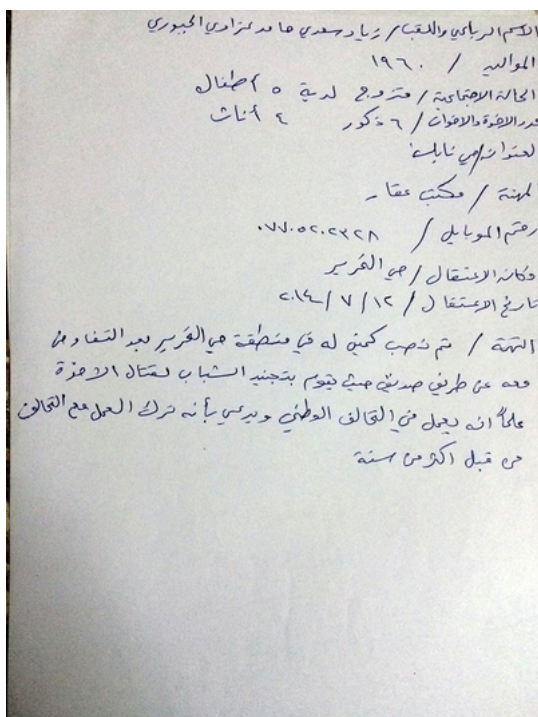 الاسم الرباعي واللقب / زياد سعدي حامد عزاوي الجبوري
المواليد / ١٩٦٠
الحالة الاجتماعية / متزوج لدية ٥ أطفال
عدد الاخوة والاخوات / ٦ ذكور ٤ أناث
لعنوان / حي نابلس
المهنة / مكتب عقار
رقم الموبايل / ٠٧٧٠٥٢٠٢٣٢٨
مكان الاعتقال / حي التحرير
تاريخ الاعتقال / ١٢ / ٧ / ٢٠١٤
التهمة / تم نصب كمين له في منطقة حي التحرير بعد التفاوض
معه عن طريق صديق حيث يقوم بتجنيد الشباب لقتال الاخوة
علماً انه يعمل في التحالف الوطني ويدعي بأنه ترك العمل مع التحالف
من قبل اكثر من سنة